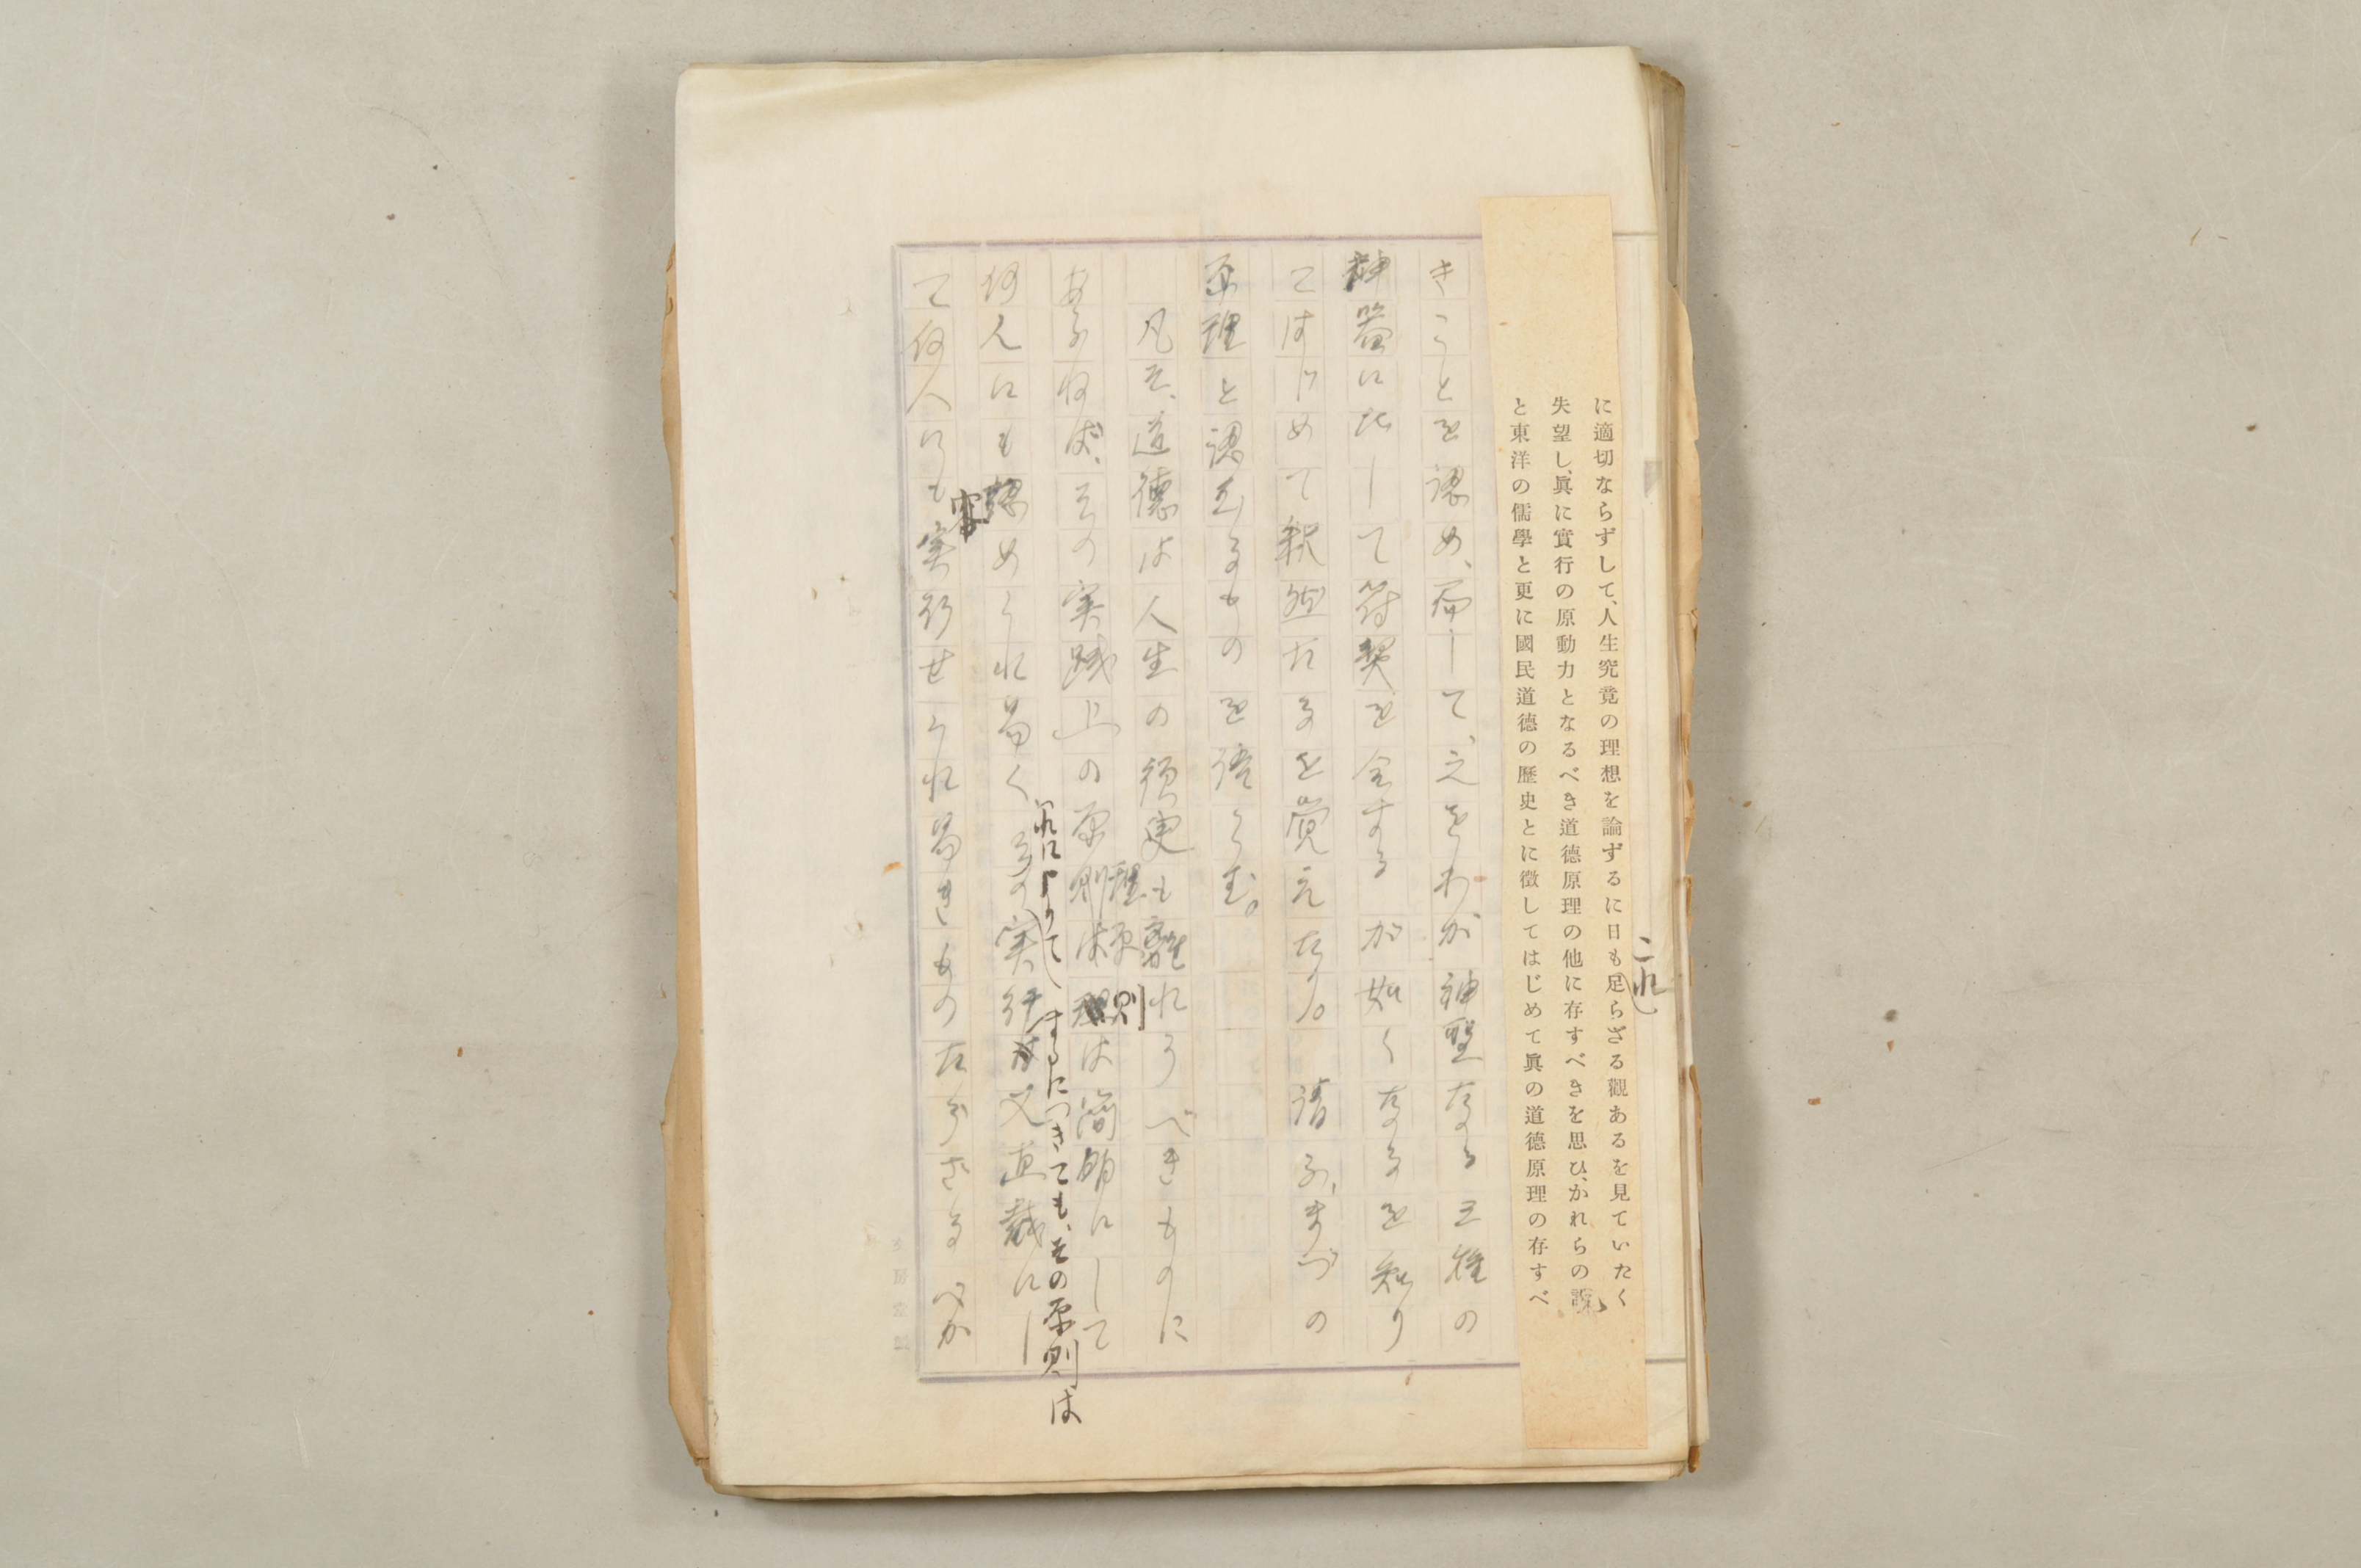 に適切ならずして、人生究竟の理想を論ずるに日も足らざる觀あるを見ていたく
これ
失望し、眞に實行の原動力となるべき道德原理の他に存すべきを思ひ、かれらの說
と東洋の儒學と更に國民道德の歷史とに徵してはじめて眞の道德原理の存すべ
きことを認め、而して、之をわが神聖なる三種の
神器に比して符契を合するが如くなるを知り
てはじめて釈然たるを覚えたり。請ふ、まづの
原理と認むるものを語らむ。
凡そ、道德は人生の須臾も離れうべきものに
あらねば、その実践上の原則原理は簡明にして
何人にも認められ易く その実行 又直截にし
これによりて するにつきても、その原則は
て何人にも実行せられ易きものたらざるべか